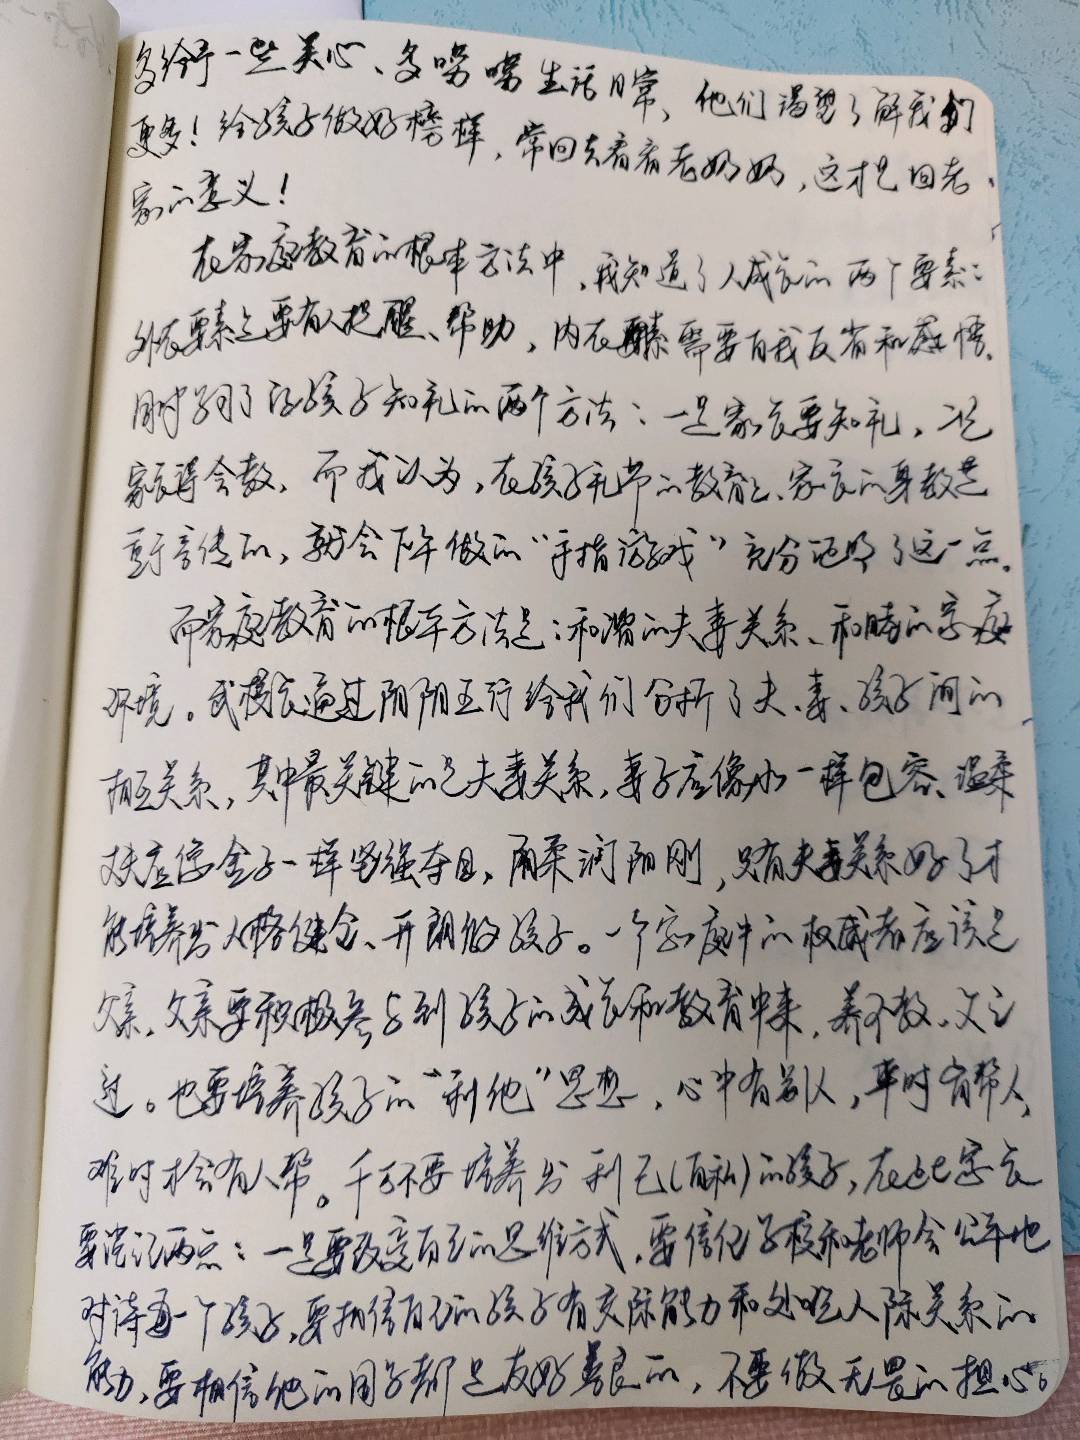 多给予一些关心、多唠唠生活日常，他们渴望了解我们
更多！给孩子做好榜样，常回去看看老奶奶，这才是回老
家的意义！
在家庭教育的根本方法中，我知道了人成长的两个要素：
外在要素是要有人提醒、帮助，内在要素需要自我反省和感悟。
同时学习了让孩子知礼的两个方法：一是家长要知礼，二是
家长得会教，而我认为，在孩子礼节的教育上、家长的身教是
重于言传的，就会下午做的“手指游戏”充分证明了这一点。
而家庭教育的根本方法是：和谐的夫妻关系、和睦的家庭
环境。武校长通过阴阳五行给我们分析了夫、妻、孩子间的
相互关系，其中最关键的是夫妻关系，妻子应像水一样包容、温柔
丈夫应像金子一样坚强夺目，阴柔润阳刚，只有夫妻关系好了才
能培养出人格健全、开朗的孩子。一个家庭中的权威者应该是
父亲，父亲要积极参与到孩子的成长和教育中来，养不教，父之
过。也要培养孩子的“利他”思想，心中有别人，平时有帮人，
难时才会有人帮。千万不要培养出利己（自私）的孩子，在此家长
要谨记两点：一是要改变自己的思维方式，要信任学校和老师会公平地
对待每一个孩子，要相信自己的孩子有交际能力和处理人际关系的
能力，要相信他的同学都是友好善良的，不要做无畏的担心。